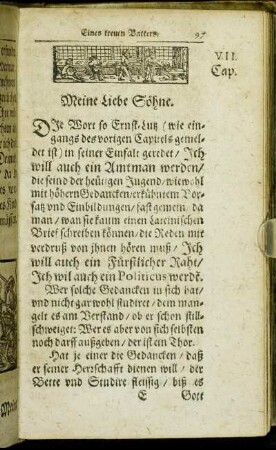 Eines treuen Vatters. 97
VII.
Cap.
Meine Liebe Söhne.
DIe Wort so Ernst-Lutz / (wie ein-
gangs des vorigen Capitels gemel-
det ist) in seiner Einfalt geredet / Ich
will auch ein Amtman werden /
die seind der heutigen Jugend / wiewohl
mit höhern Gedancken / erkühntem Vor-
satz vnd Einbildungen / fast gemein da
man / wan sie kaum einen Lateinischen
Brief schreiben können / die Reden mit
verdruß von jhnen hören muß / Ich
will auch ein Fürstlicher Raht /
Ich wil auch ein Politicus werdē.
Wer solche Gedancken in sich hat /
vnd nicht gar wohl studiret / dem man-
gelt es am Verstand / ob er schon still-
schweiget: Wer es aber von sich selbsten
noch darff außgeben / der ist ein Thor.
Hat je einer die Gedancken / daß
er seiner Herrschafft dienen will / der
Bette vnd Studire fleissig / biß es
E Gott